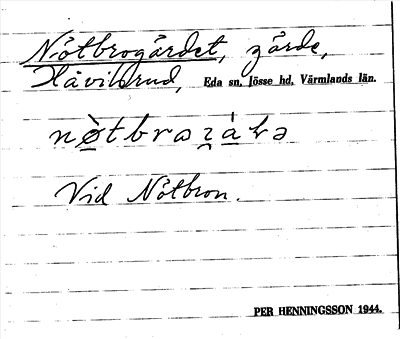 Nötbrogärdet, gärde,
Håvilsrud, Eda sn. Jösse hd. Värmlands län.
Vid Nötbron.
PER HENNINGSSON 1944.